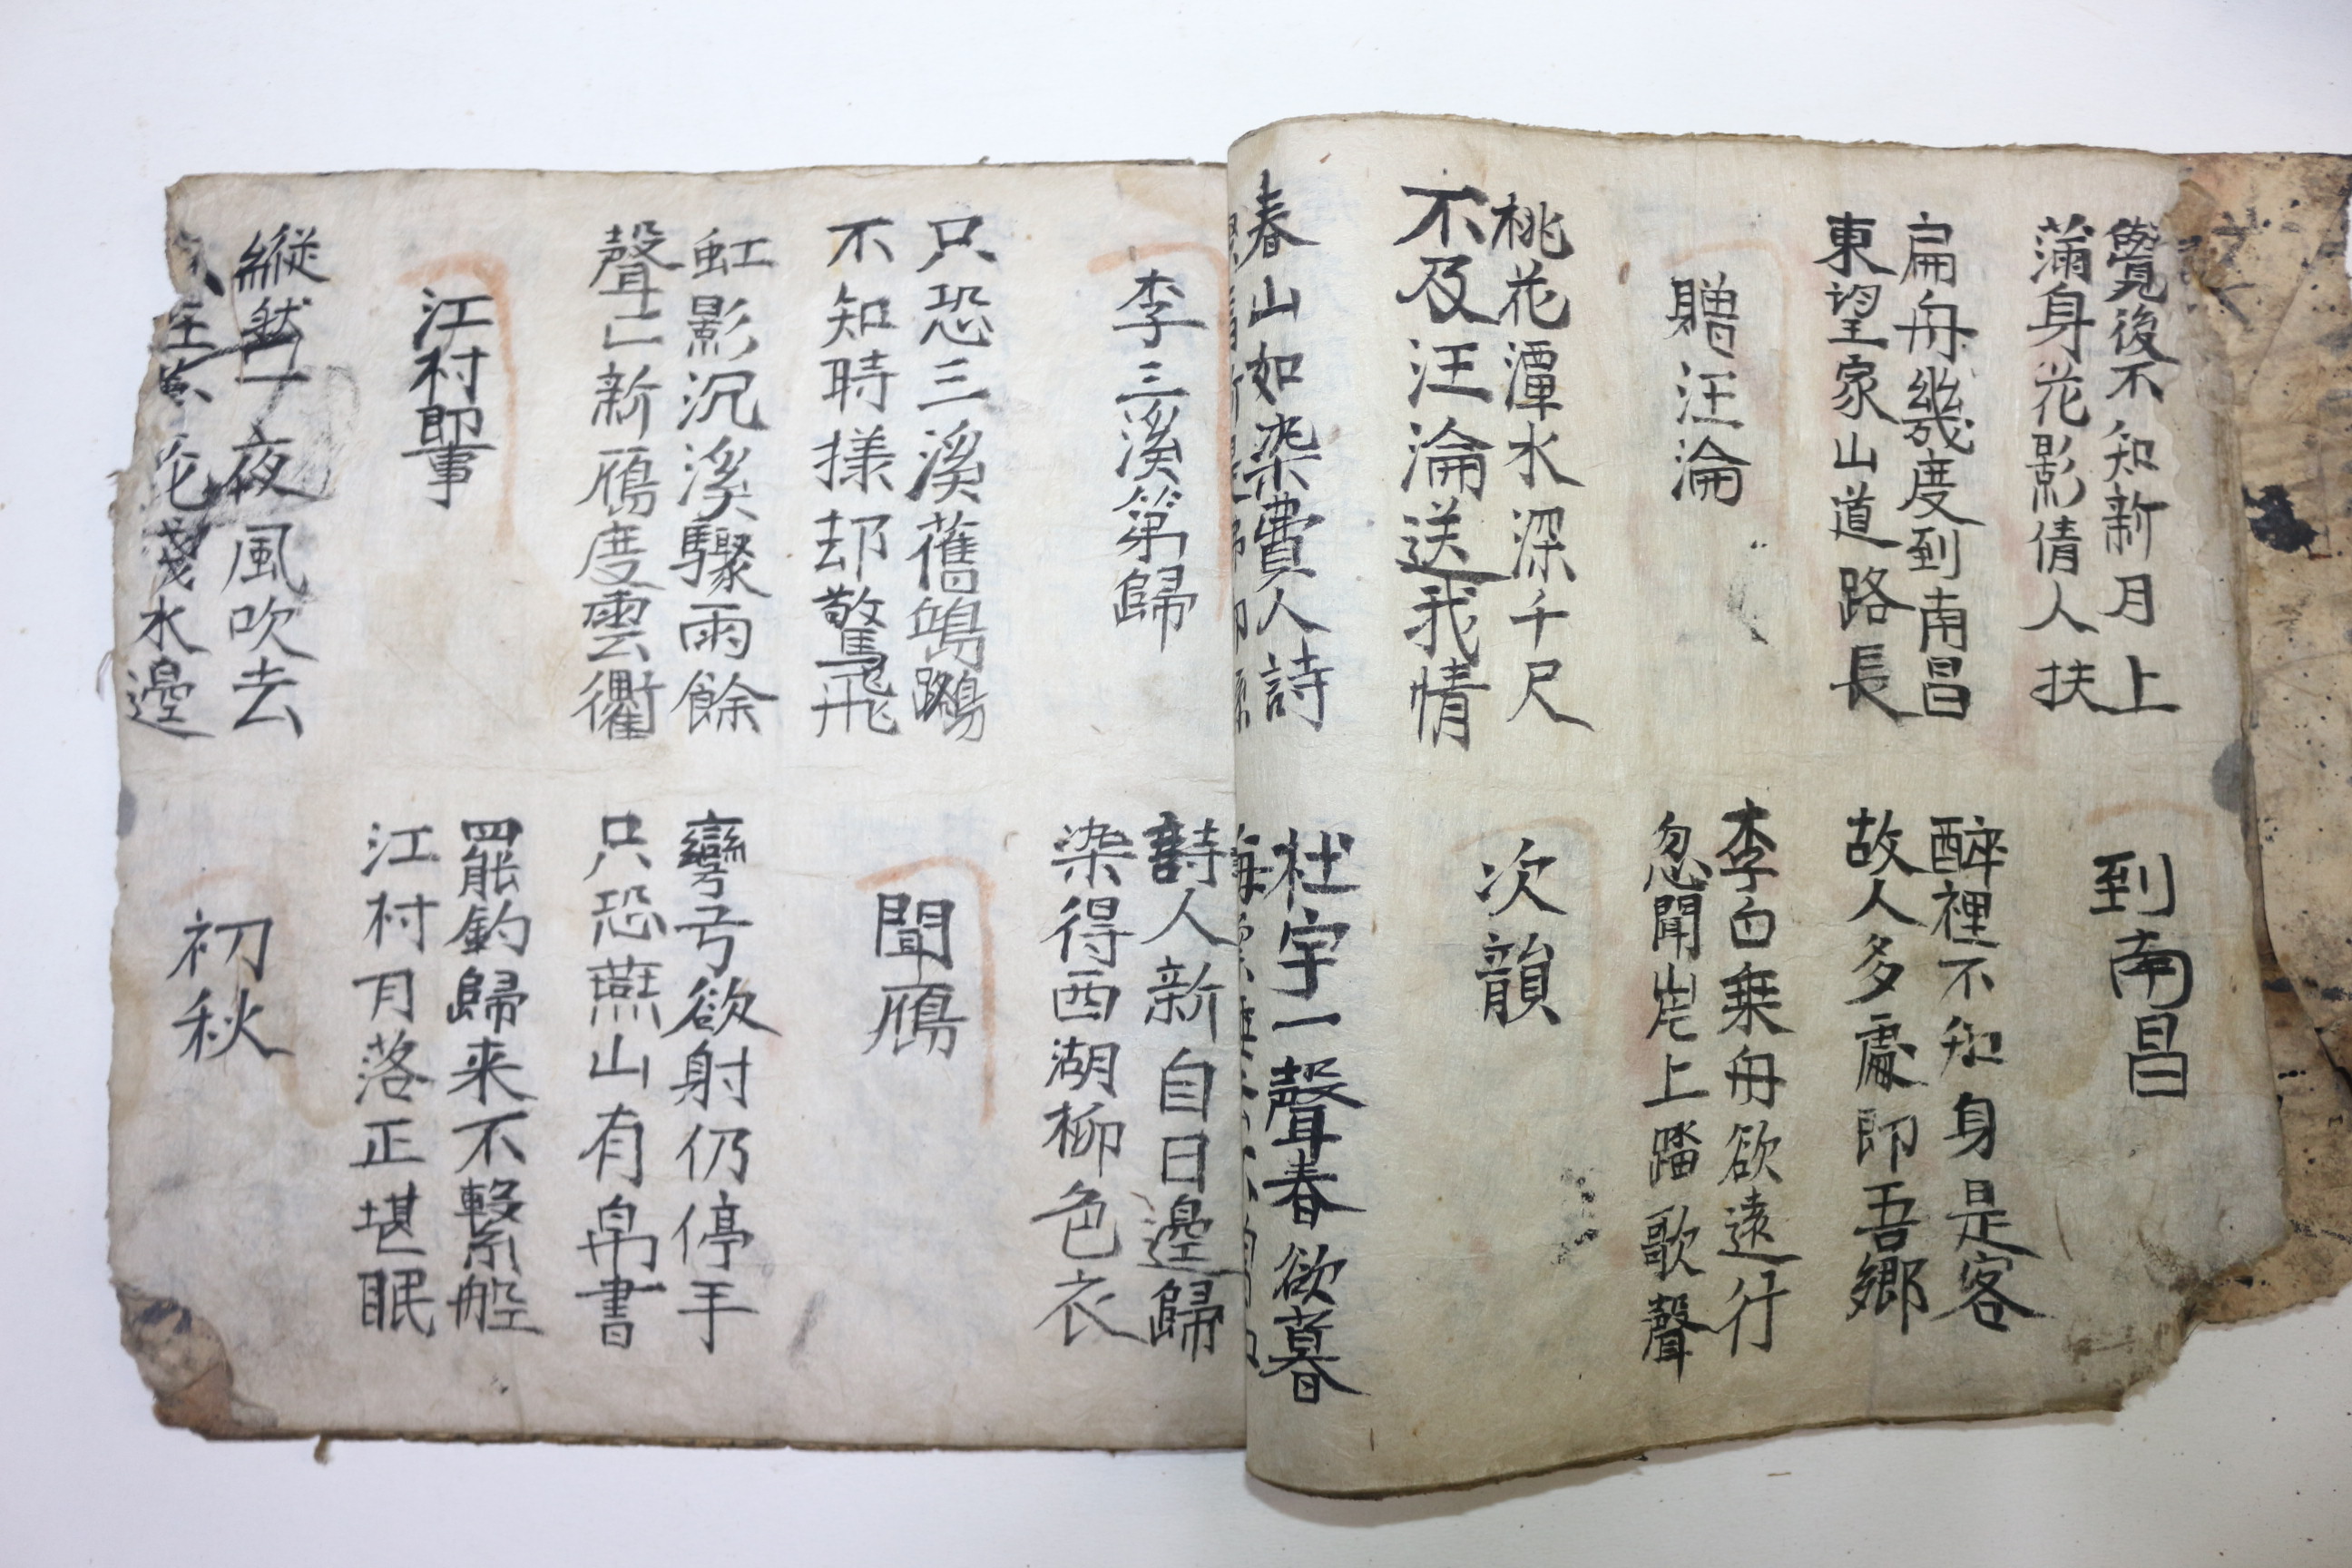 覺後不知新月上
滿身花影倩人扶
到南昌
扁舟幾度到南昌
東望家山道路長
醉裡不知身是客
故人多處即吾鄉
贈汪淪
李白乗舟欲遠行
忽聞岸上踏歌聲
桃花潭水深千尺
不及汪淪送我情
次韻
春山如染費人詩
杜宇一聲春欲暮
李三溪第歸
詩人新自日邊歸
染得西湖柳色衣
只恐三溪舊鴝鵒
不知時㨾却驚飛
聞鴈
虹影沉溪驟雨餘
聲亡新鴈度雲衢
彎弓欲射仍停手
只恐燕山有帛書
江村即事
罷釣歸来不繋舡
江村月落正堪眠
縦然一夜風吹去
花淺水邊
初秋